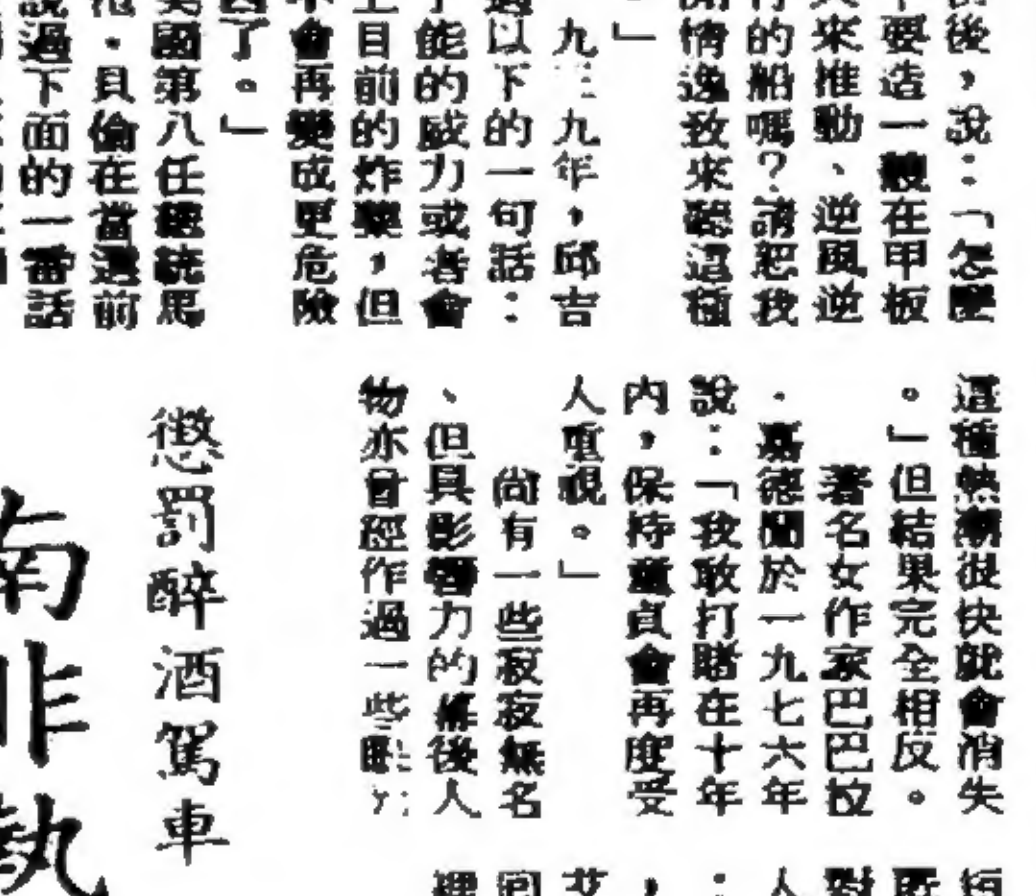 後，說：「怎麼
要造一艘在甲板
來推動、逆風逆
的船嗎？請恕我
情逸致來聽這種
」
九三九年，邱吉
以下的一句話：
能的威力或者會
目前的炸藥，但
會再變成更危險
了。」
國第八任總統馬
．貝倫在當選前
過下面的一番話
這種熱潮很快就會消失
。」但結果完全相反。
著名女作家巴巴拉
．嘉德蘭於一九七六年
說：「我敢打賭在十年
內，保持童貞會再度受
人重視。」
尚有一些寂寂無名
、但具影響力的幕後人
物亦曾經作過一些
懲罰醉酒駕車
南非執